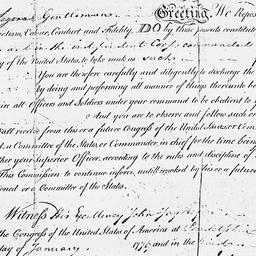 Gentleman. Greeting, We Repos
riotism, Valour, Conduct and Fidelity, DO by these presents constitute
in the independent Corps commanded
y of the United States, to take rank as such
You are therefore carefully and diligently to discharge the
by doing and performing all manner of things thereunto be
ire all Officers and Soldiers under your command to be obedient to y
And you are to observe and follow such or
all receive from this or a future Congress of the United States or Com
, a Committee of the States, or Commander, in chief for the time being
ther your Superior Officer, according to the rules and discipline of
This Commission to continue in force, until revoked by this or a future
ioned or a Committee of the States.
Witness His Excellency John Jay
the Congress of the United States of America at Philadelphia
day of January 1779 and in the